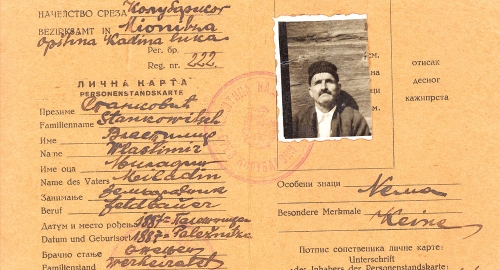 НАЧЕЛСТВО СРЕЗА Колубарског
BEZIRKSAMT IN Mionitza
Opština Radina Luka
Пер. бр.
Reg. nr. 222.
ЛИЧНА КАРТА
PERSONENSTANDSKARTE
Презиме Станковић
Familienname Stankowitsch
Име Властимир
Name Wlastimir
Име оца Миладин
Name des Vaters Miladin
Занимање земљорадник
Beruf feldbauer
Датум и место рођења 1887-
Datum und Geburtsort 1887-
Брачно стање ожењен
Familienstand verheiratet
отисак
десног
кажипрста
Особени знаци Нема
Besondere Merkmale Keine
Потпис сопственика личне карте:
Unterschrift
des Inhabers der Personenstandskarte: